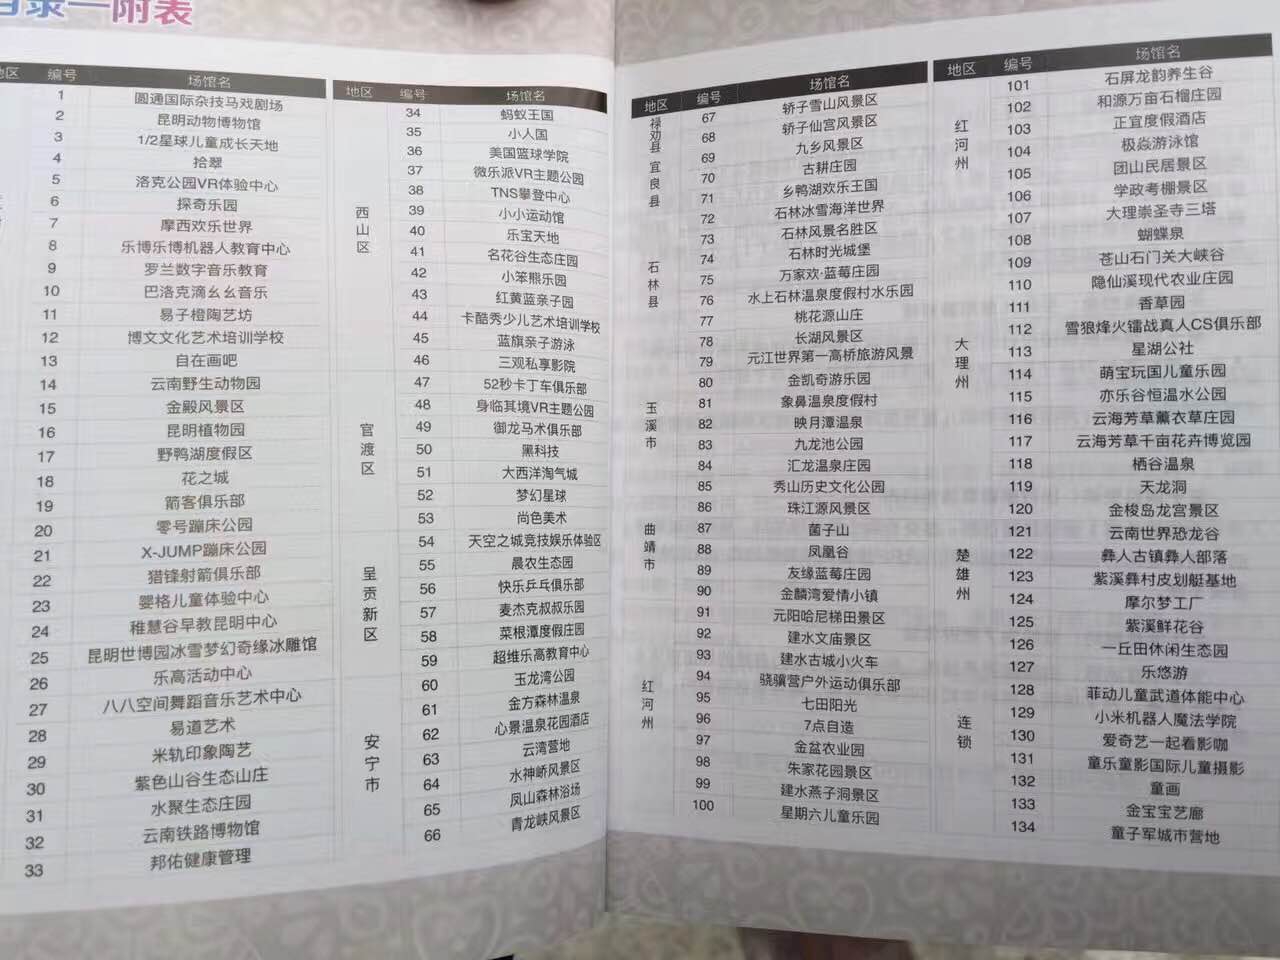 目录—附表
地区 编号 场馆名
1 圆通国际杂技马戏剧场
2 昆明动物博物馆
3 1/2星球儿童成长天地
4 拾翠
5 洛克公园VR体验中心
6 探奇乐园
7 摩西欢乐世界
8 乐博乐博机器人教育中心
9 罗兰数字音乐教育
10 巴洛克滴幺幺音乐
11 易子橙陶艺坊
12 博文文化艺术培训学校
13 自在画吧
14 云南野生动物园
15 金殿风景区
16 昆明植物园
17 野鸭湖度假区
18 花之城
19 箭客俱乐部
20 零号蹦床公园
21 X-JUMP蹦床公园
22 猎锋射箭俱乐部
23 婴格儿童体验中心
24 稚慧谷早教昆明中心
25 昆明世博园冰雪梦幻奇缘冰雕馆
26 乐高活动中心
27 八八空间舞蹈音乐艺术中心
28 易道艺术
29 米轨印象陶艺
30 紫色山谷生态山庄
31 水聚生态庄园
32 云南铁路博物馆
33 邦佑健康管理
地区 编号 场馆名
西山区
34 蚂蚁王国
35 小人国
36 美国篮球学院
37 微乐派VR主题公园
38 TNS攀登中心
39 小小运动馆
40 乐宝天地
41 名花谷生态庄园
42 小笨熊乐园
43 红黄蓝亲子园
44 卡酷秀少儿艺术培训学校
45 蓝旗亲子游泳
46 三观私享影院
官渡区
47 52秒卡丁车俱乐部
48 身临其境VR主题公园
49 御龙马术俱乐部
50 黑科技
51 大西洋淘气城
52 梦幻星球
53 尚色美术
呈贡新区
54 天空之城竞技娱乐体验区
55 晨农生态园
56 快乐乒乓俱乐部
57 麦杰克叔叔乐园
58 菜根潭度假庄园
59 超维乐高教育中心
安宁市
60 玉龙湾公园
61 金方森林温泉
62 心景温泉花园酒店
63 云湾营地
64 水神峤风景区
65 凤山森林浴场
66 青龙峡风景区
地区 编号 场馆名
禄劝县
67 轿子雪山风景区
68 轿子仙宫风景区
宜良县
69 九乡风景区
70 古耕庄园
71 乡鸭湖欢乐王国
石林县
72 石林冰雪海洋世界
73 石林风景名胜区
74 石林时光城堡
75 万家欢·蓝莓庄园
76 水上石林温泉度假村水乐园
77 桃花源山庄
78 长湖风景区
玉溪市
79 元江世界第一高桥旅游风景
80 金凯奇游乐园
81 象鼻温泉度假村
82 映月潭温泉
83 九龙池公园
84 汇龙温泉庄园
85 秀山历史文化公园
曲靖市
86 珠江源风景区
87 菌子山
88 凤凰谷
89 友缘蓝莓庄园
90 金麟湾爱情小镇
红河州
91 元阳哈尼梯田景区
92 建水文庙景区
93 建水古城小火车
94 骁骥营户外运动俱乐部
95 七田阳光
96 7点自造
97 金盆农业园
98 朱家花园景区
99 建水燕子洞景区
100 星期六儿童乐园
地区 编号 场馆名
红河州
101 石屏龙韵养生谷
102 和源万亩石榴庄园
103 正宜度假酒店
104 极焱游泳馆
105 团山民居景区
106 学政考棚景区
大理州
107 大理崇圣寺三塔
108 蝴蝶泉
109 苍山石门关大峡谷
110 隐仙溪现代农业庄园
111 香草园
112 雪狼烽火镭战真人CS俱乐部
113 星湖公社
114 萌宝玩国儿童乐园
115 亦乐谷恒温水公园
116 云海芳草薰衣草庄园
117 云海芳草千亩花卉博览园
118 栖谷温泉
119 天龙洞
120 金梭岛龙宫景区
楚雄州
121 云南世界恐龙谷
122 彝人古镇彝人部落
123 紫溪彝村皮划艇基地
124 摩尔梦工厂
125 紫溪鲜花谷
126 一丘田休闲生态园
连锁
127 乐悠游
128 菲动儿童武道体能中心
129 小米机器人魔法学院
130 爱奇艺一起看影咖
131 童乐童影国际儿童摄影
132 童画
133 金宝宝艺廊
134 童子军城市营地